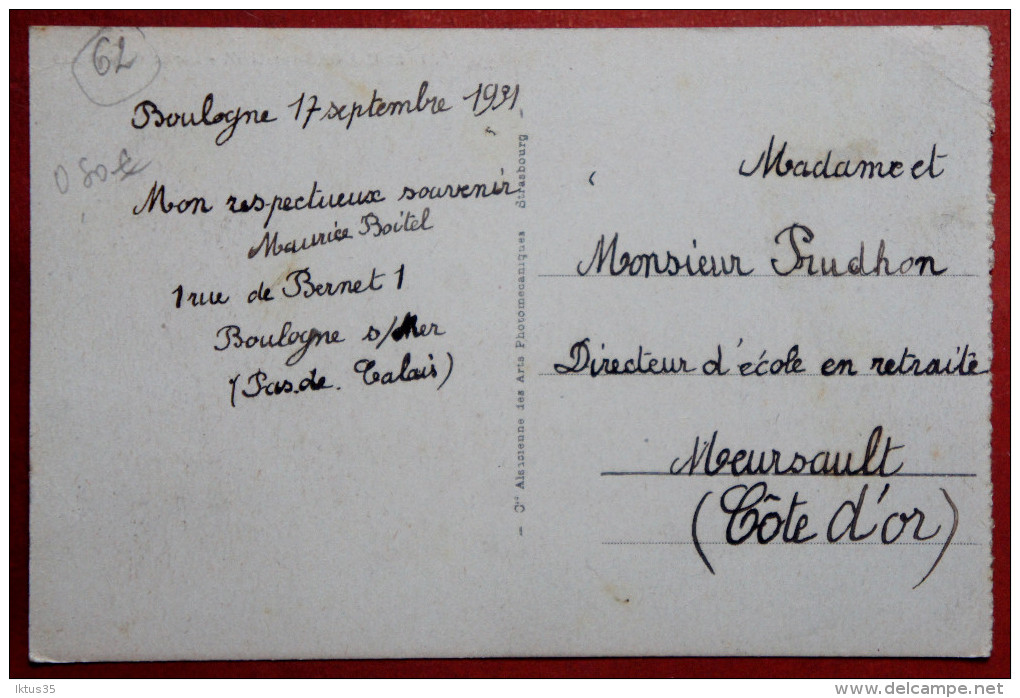 62
Boulogne 17 septembre 1931
Mon respectueux souvenir
Maurice Boitel
1 rue de Bernet 1
Boulogne s/Mer
(Pas.de.Calais)
— Cie Alsacienne des Arts Photomécaniques Strasbourg —
Madame et
Monsieur Prudhon
Directeur d'école en retraite
Meursault
(Côte d'or)
Iktus35
www.delcampe.net